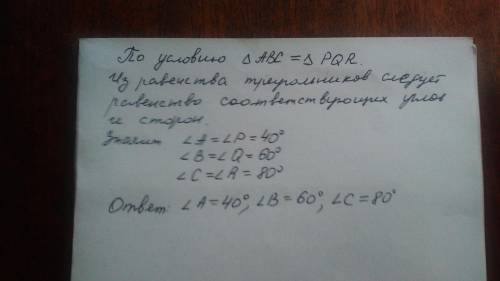 По условию △ABC = △PQR.
Из равенства треугольников следует
равенство соответствующих углов
и сторон.
Значит ∠A = ∠P = 40°
∠B = ∠Q = 60°
∠C = ∠R = 80°
Ответ: ∠A = 40°, ∠B = 60°, ∠C = 80°